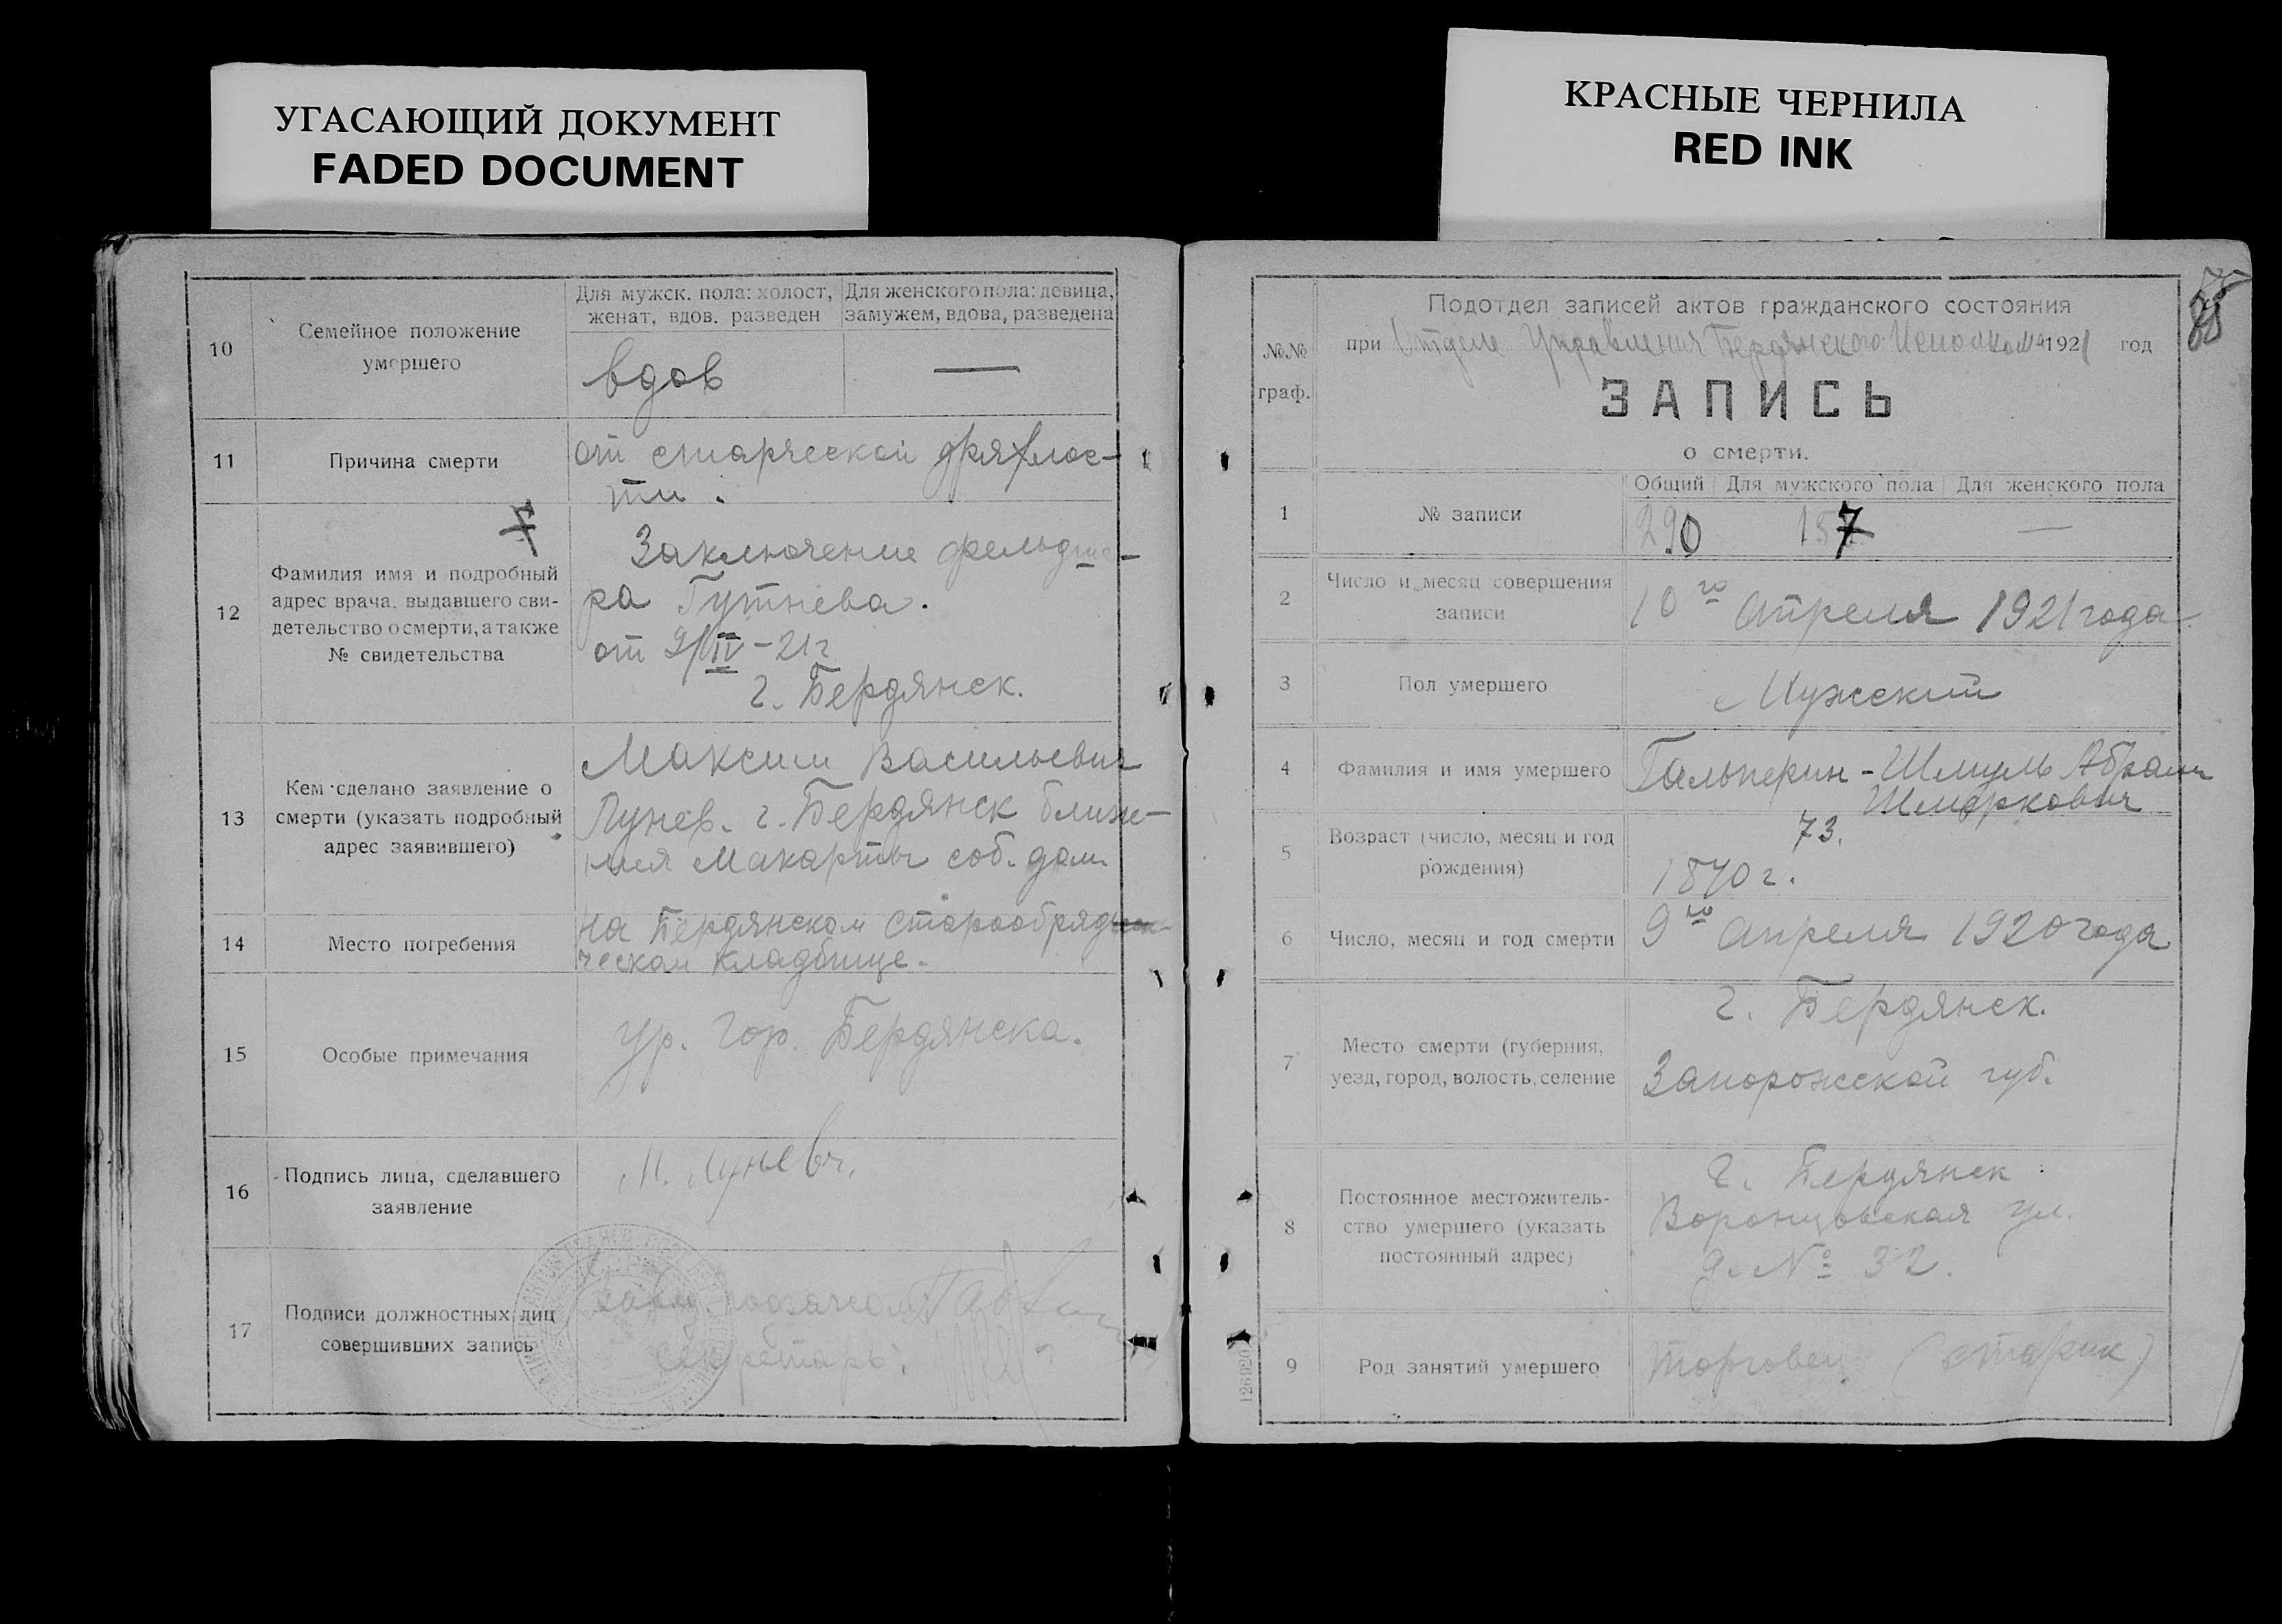 УГАСАЮЩИЙ ДОКУМЕНТ
FADED DOCUMENT
КРАСНЫЕ ЧЕРНИЛА
RED INK
10
Семейное положение
умершего
Для мужск. пола: холост,
женат, вдов. разведен
Для женского пола: девица,
замужем, вдова, разведена
вдов
—
11
Причина смерти
от старческой дряхлос-
ти.
12
Фамилия имя и подробный
адрес врача, выдавшего сви-
детельство о смерти, а также
№ свидетельства
Заключение фельдше-
ра Гутнева.
от 9/IV-21г
г. Бердянск.
13
Кем сделано заявление о
смерти (указать подробный
адрес заявившего)
Максим Васильевич
Лунев. г. Бердянск ближ-
ния Макорты соб. дом
14
Место погребения
на Бердянском старообряд
ческом кладбище.
15
Особые примечания
ур. гор. Бердянска.
16
Подпись лица, сделавшего
заявление
М. Луневъ.
17
Подписи должностных лиц
совершивших запись
Секретарь:
№№
граф.
Подотдел записей актов гражданского состояния
при Отделе Управления Бердянского Исполкома 1921 год
ЗАПИСЬ
о смерти.
1
№ записи
Общий
Для мужского пола
Для женского пола
290
157
—
2
Число и месяц совершения
записи
10го Апреля 1921 года
3
Пол умершего
Мужский
4
Фамилия и имя умершего
Гальперин - Шмуль Абрам
Шмеркович
5
Возраст (число, месяц и год
рождения)
73.
1840 г.
6
Число, месяц и год смерти
9го Апреля 1920 года
7
Место смерти (губерния,
уезд, город, волость, селение
г. Бердянск.
Запорожской губ.
8
Постоянное местожитель-
ство умершего (указать
постоянный адрес)
г. Бердянск
Воронцовская ул.
д. № 32.
9
Род занятий умершего
торговец (старик)
126920